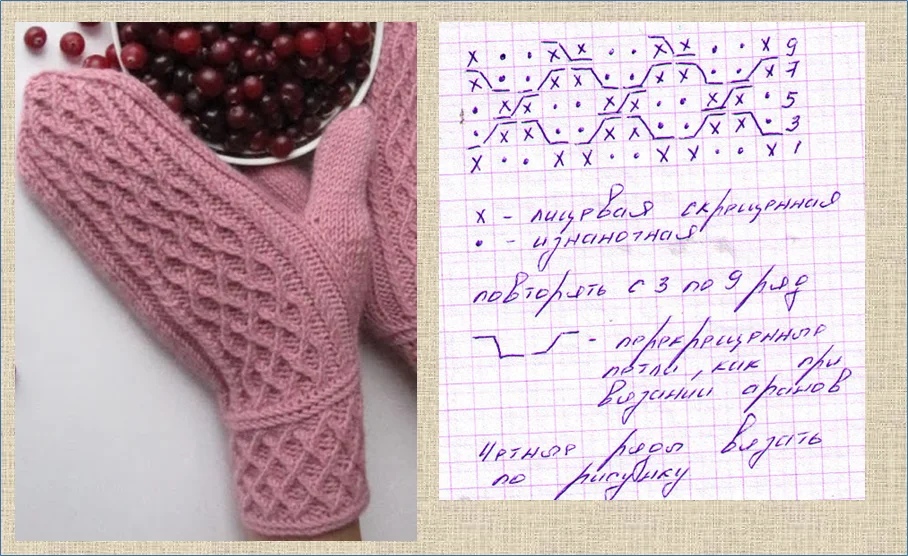 x • • x x • • x x • • x 9
x • • x x • • x x • • x 7
• x x • • x x • • x x • 5
• x x • • x x • • x x • 3
x • • x x • • x x • • x 1
x - лицевая скрещенная
• - изнаночная
повторять с 3 по 9 ряд
- перекрещенные
петли, как при
вязании аранов
Четные ряды вязать
по рисунку